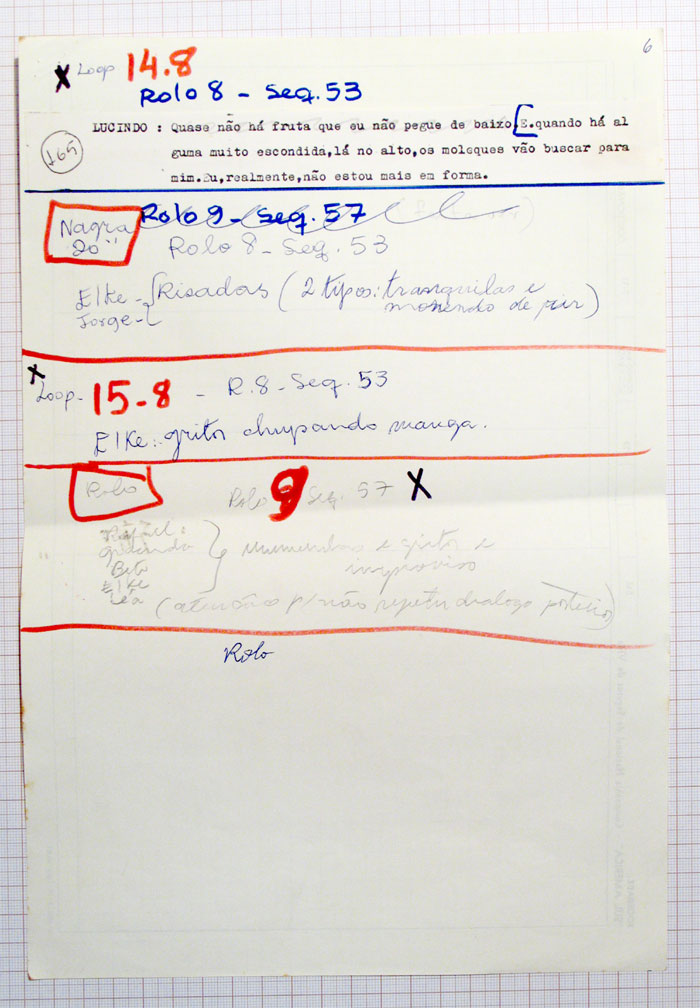 6
X Loop 14.8
Rolo 8 - Seq. 53
LUCINDO : Quase não há fruta que eu não pegue de baixo.E.quando há al
165
guma muito escondida,lá no alto,os moleques vão buscar para
mim.Eu,realmente,não estou mais em forma.
Rolo 9 - Seq. 57
Nagra
20"
Rolo 8 - Seq. 53
Elke - Risadas (2 tipos: tranquilas e
Jorge - morrendo de rir)
X
Loop - 15-8 - R.8 - Seq. 53
Elke: gritos chupando manga.
Rolo
Rolo 9 Seq. 57 X
Beto
Elke
Léa
e gritos e
improviso
(atenção p/ não repetir dialogo
Rolo